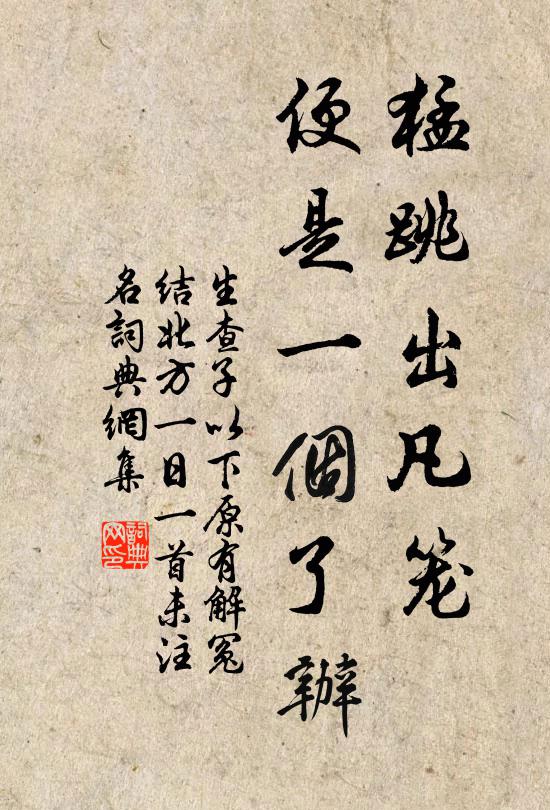 猛跳出凡笼
便是一個了辦
生查子以下原有解冤
结北方一日一首未注
名詞典網集
詞典
网印